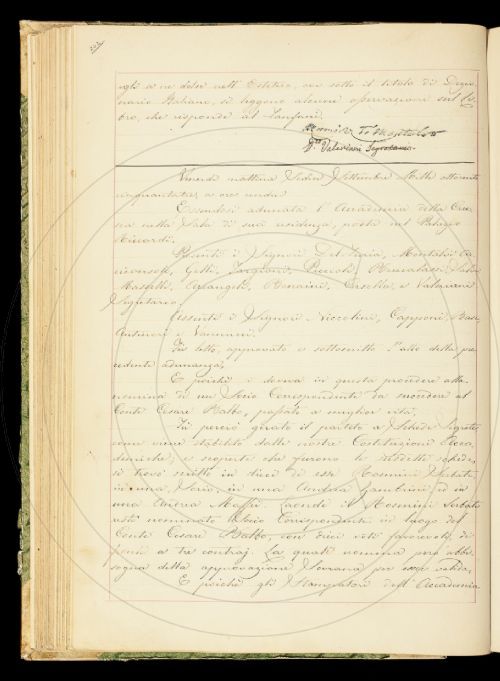 egli a ne delse nell' Estetico, ove sotto il titolo di Dizio-
nario Italiano, si leggono alcune osservazioni sul Li-
bro, che risponde al Fanfani.
Segretario.
Venerdì mattina Sedici Settembre Mille ottocento
cinquantatre, a ore undici
Essendosi adunata l' Accademia della Cru-
sca nella Sala di sua residenza, posta nel Palazzo
Riccardi.
Presenti i Signori Del Furia, Montalvi Ar-
ciconsolo, Gelli, Targioni, Puccioli,
Masselli, Arcangeli, Bonaini, Casella, e Valeriani
Segretario,
Assenti i Signori Niccolini, Capponi,
e Vannucci.
Fu letto, approvato e sottoscritto l' atto della pre-
cedente adunanza,
E poichè si doveva in questa procedere alla
nomina di un Socio Corrispondente da succedere al
Conte Cesare Balbo, passato a miglior vita,
Fu perciò girato il partito a Schede Segrete,
come viene stabilito dalle nostre Costituzioni Acca-
demiche; e scoperte che furono le suddette schede,
si trovò scritto in dieci di esse Rosmini Serbati
in una, in una Andrea Gambrini e in
una Andrea Maffei. Laonde il Rosmini Serbati
restò nominato Socio Corrispondente in luogo del
Conte Cesare Balbo, con dieci voti favorevoli, di
fronte a tre contrarj. La quale nomina però abbi-
sogna della approvazione Sovrana per esser valida.
E poichè gli Stampatori dell' Accademia